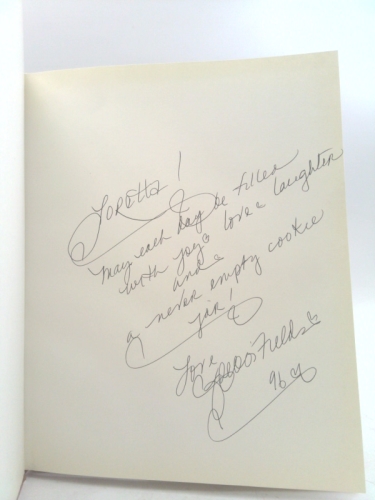 Loretta!
May each day be filled
with joy & love & laughter
and a
never empty cookie
jar!
Love
Fields
96